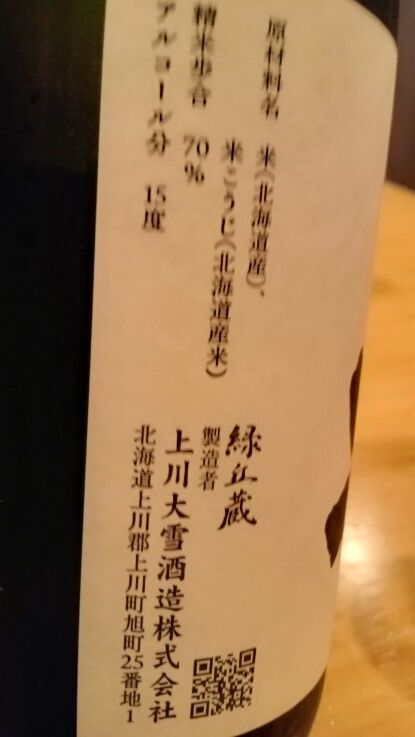 原材料名　米（北海道産）、
米こうじ（北海道産米）
精米歩合　70％
アルコール分　15度
緑丘蔵
製造者
上川大雪酒造株式会社
北海道上川郡上川町旭町25番地1